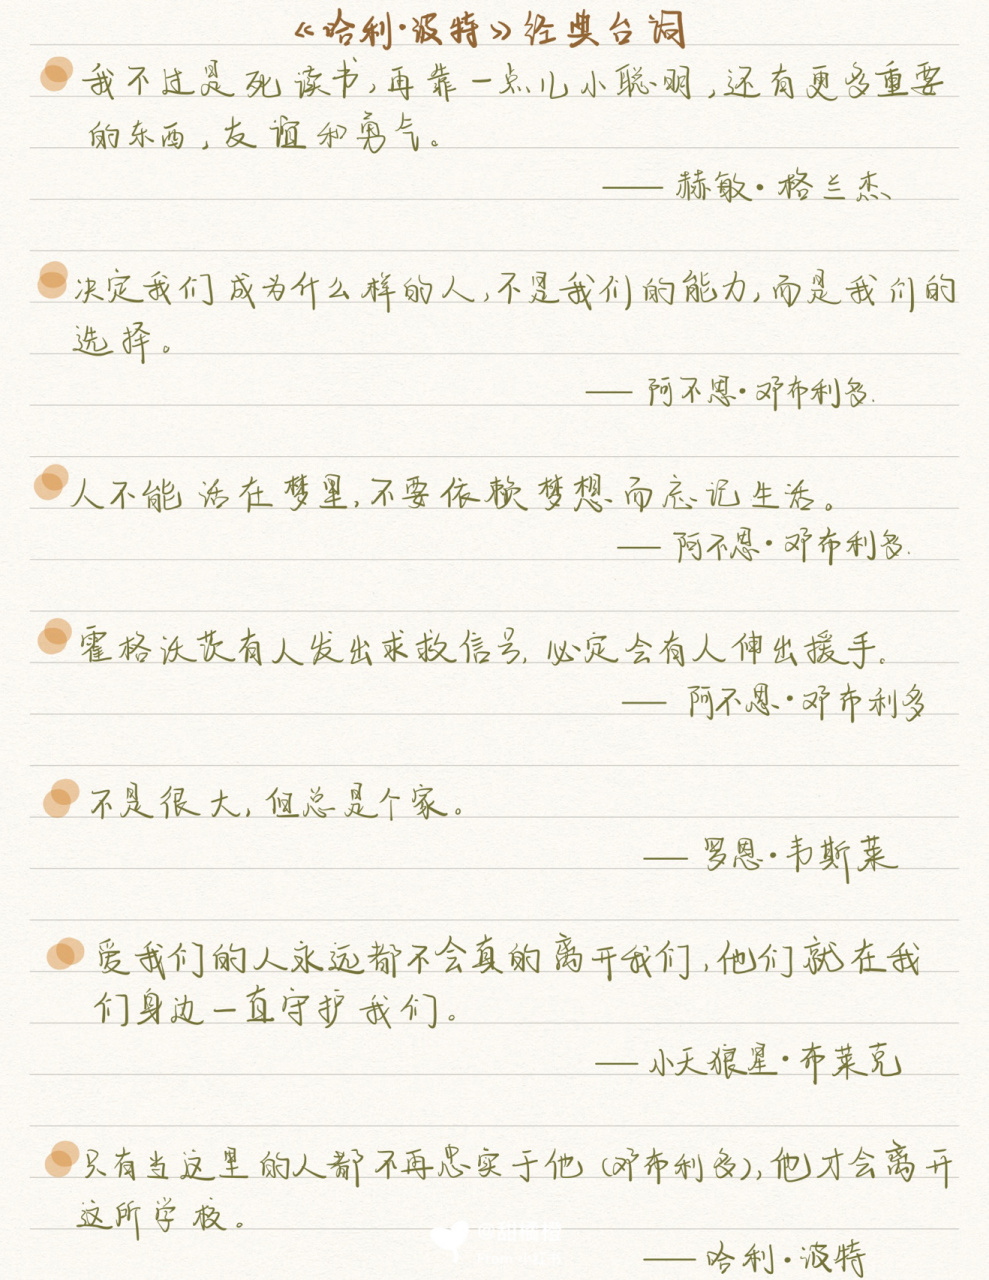 《哈利·波特》经典台词
我不过是死读书,再靠一点儿小聪明,还有更多重要
的东西,友谊和勇气。
—— 赫敏·格兰杰
决定我们成为什么样的人,不是我们的能力,而是我们的
选择。
—— 阿不思·邓布利多.
人不能活在梦里,不要依赖梦想而忘记生活。
—— 阿不思·邓布利多.
霍格沃茨有人发出求救信号,必定会有人伸出援手。
—— 阿不思·邓布利多
不是很大,但总是个家。
—— 罗恩·韦斯莱
爱我们的人永远都不会真的离开我们,他们就在我
们身边一直守护我们。
—— 小天狼星·布莱克
只有当这里的人都不再忠实于他(邓布利多),他才会离开
这所学校。
—— 哈利·波特